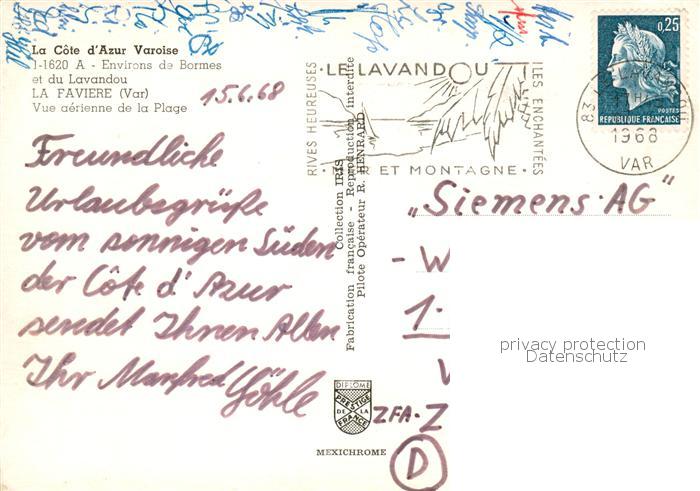 La Côte d'Azur Varoise
1-1620 A - Environs de Bormes
et du Lavandou
LA FAVIERE (Var)
Vue aérienne de la Plage
15.6.68
Freundliche
Urlaubsgrüße
vom sonnigen Süden
der Côte d'Azur
sendet Ihnen Allen
Ihr Manfred
Göhle
Collection IRIS
Fabrication française - Reproduction interdite
Pilote Opérateur R. HENRARD
DIPLOME
PRESTIGE
DE LA
FRANCE
MEXICHROME
RIVES HEUREUSES
LE LAVANDOU
ILES ENCHANTÉES
MER ET MONTAGNE
0,25
POSTES
REPUBLIQUE FRANÇAISE
83
1968
VAR
„Siemens-AG"
- W
1.
ZFA-Z
D
privacy protection
Datenschutz